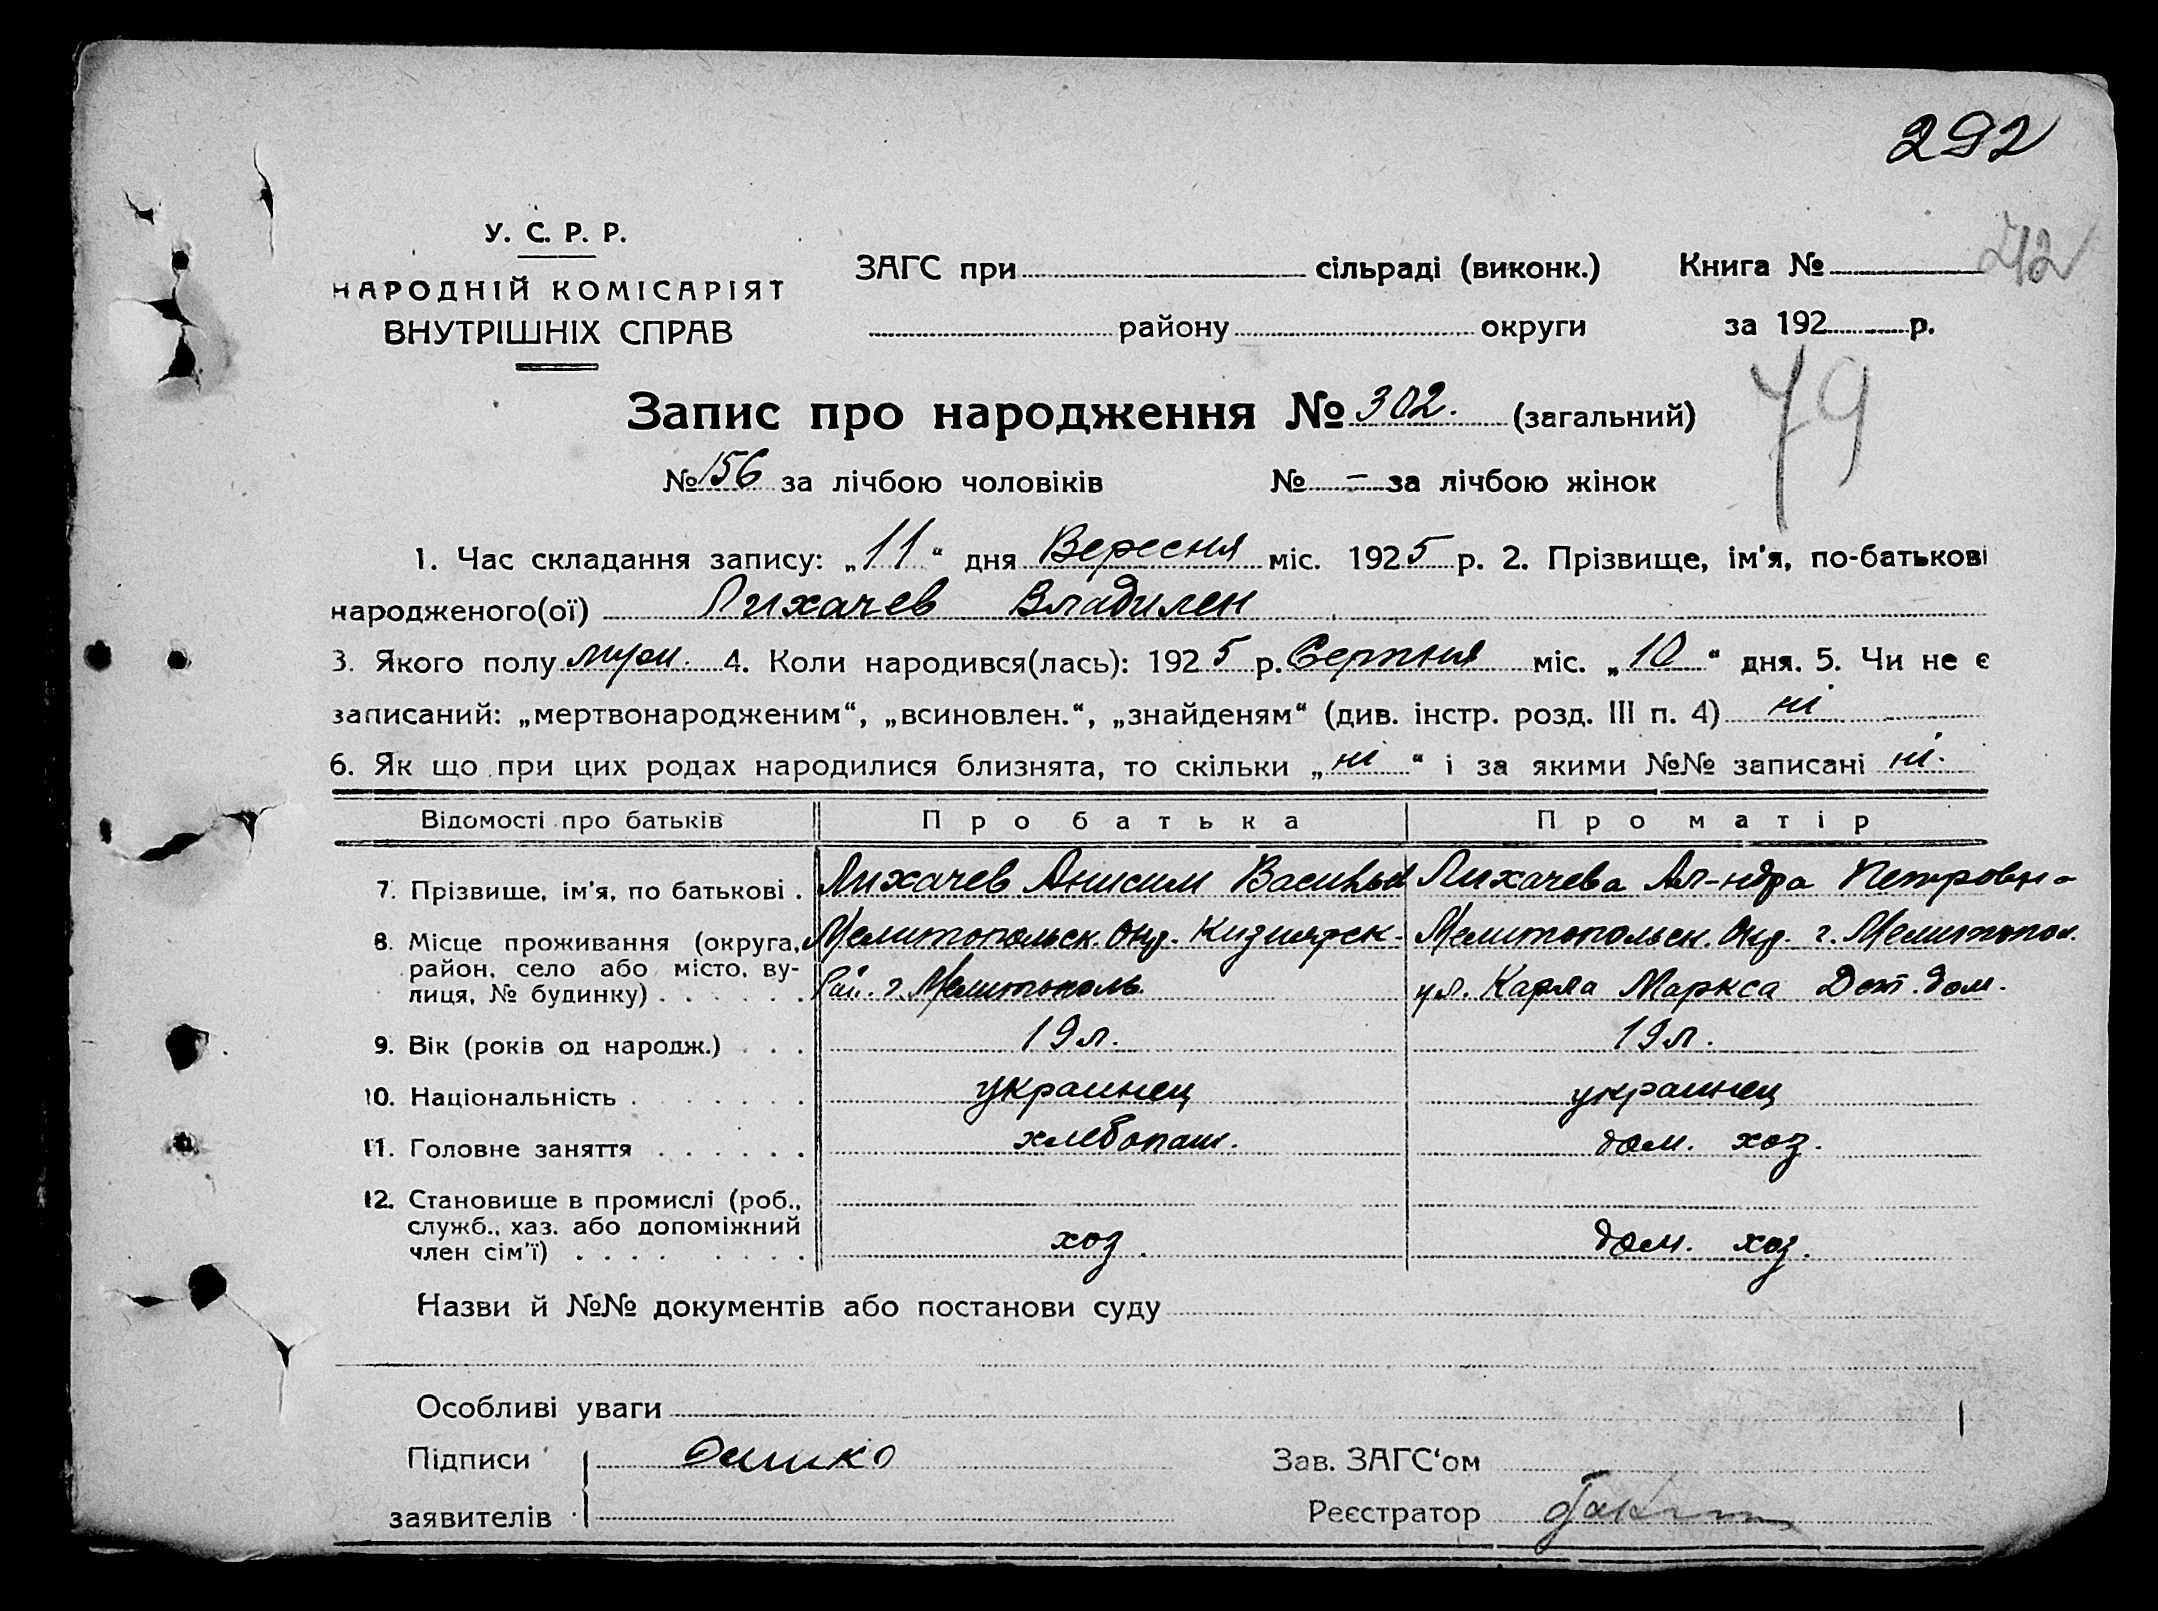 292
У. С. Р. Р.
НАРОДНІЙ КОМІСАРІЯТ
ВНУТРІШНІХ СПРАВ
ЗАГС при сільраді (виконк.) Книга №
району округи за 192 р.
79
Запис про народження № 302. (загальний)
№ 156 за лічбою чоловіків № – за лічбою жінок
1. Час складання запису: „11“ дня Вересня міс. 1925 р. 2. Прізвище, ім'я, по-батькові
народженого(ої) Лихачев Владилен
3. Якого полу 4. Коли народився(лась): 1925 р. Серпня міс. „10“ дня. 5. Чи не є
записаний: „мертвонародженим“, „всиновлен.“, „знайденям“ (див. інстр. розд. III п. 4) ні
6. Як що при цих родах народилися близнята, то скільки „ні“ і за якими №№ записані ні.
Відомості про батьків Про батька Про матір
7. Прізвище, ім'я, по батькові . Лихачев Анисим Лихачева Ал-ндра Петровна
8. Місце проживання (округа, Мелитопольск. Окр. Кизиярск. Мелитопольск. Окр. г. Мелитопол.
район, село або місто, ву-
лиця, № будинку) . . . . . . Рай. г. Мелитополь. ул. Карла Маркса Дет. дом.
9. Вік (років од народж.) . . . 19 л. 19 л.
10. Національність . . . . . . . украинец украинец
11. Головне заняття . . . . . . хлебопаш. дом. хоз.
12. Становище в промислі (роб.,
служб., хаз. або допоміжний
член сім'ї) . . . . . . . . хоз. дом. хоз.
Назви й №№ документів або постанови суду
Особливі уваги
Підписи Зав. ЗАГС'ом
заявителів Реєстратор